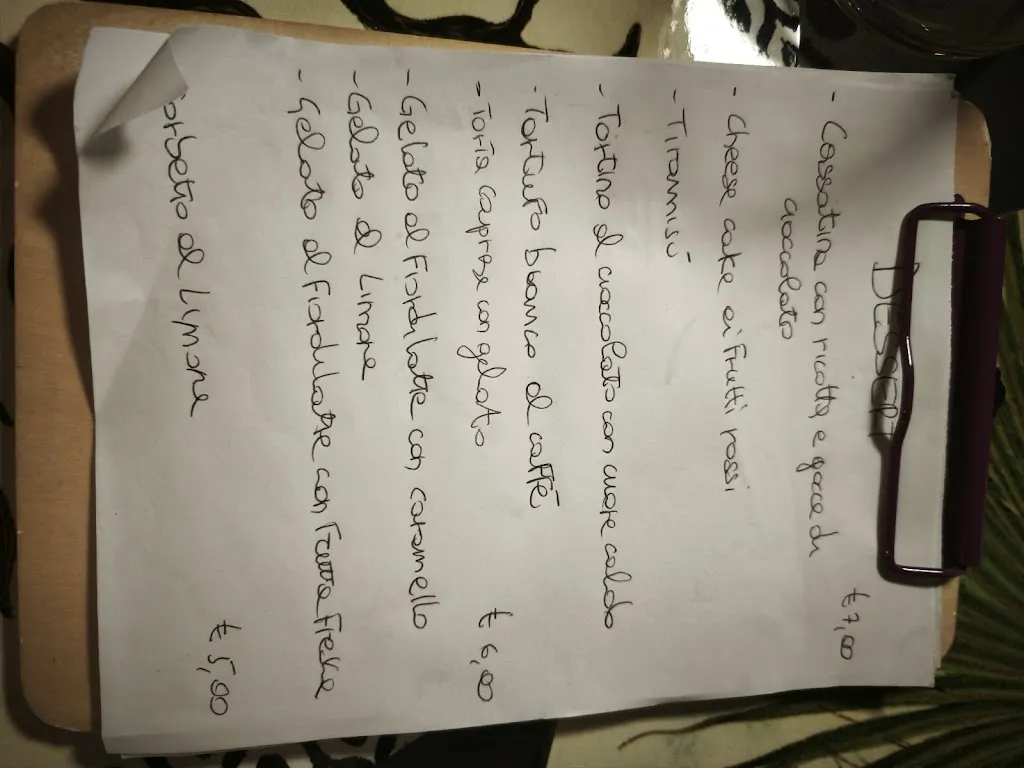 DESSERT
- Cassatina con ricotta e gocce di
cioccolato € 7,00
- Cheese cake ai Frutti rossi
- Tiramisù
- Tortino al cioccolato con cuore caldo
- Tartufo bianco al caffè
- Torta caprese con gelato € 6,00
- Gelato al Fiordilatte con caramello
- Gelato al Limone
- Gelato al Fiordilatte con Frutta Fresca
Sorbetto al Limone € 5,00